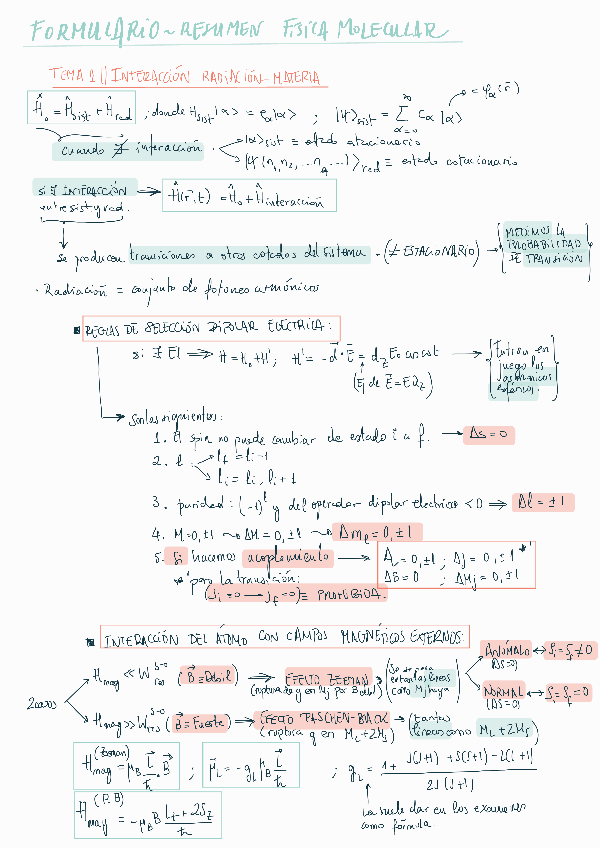 FORMULARIO ~ RESUMEN FÍSICA MOLECULAR
TEMA 1 // INTERACCIÓN RADIACIÓN-MATERIA
Ĥ₀ = Ĥsist + Ĥred ; donde Hsist |α> = eα|α> ; |Ψ>sist = Σ_{α=0}^{∞} Cα |α> → = φα(r̄)
cuando ∄ interacción
|α>sist ≡ estado estacionario
|Ψ(n₁, n₂, ... nq ...)>red ≡ estado estacionario
SI ∃ INTERACCIÓN entre sist y red. ⟹ Ĥ(r̄,t) = Ĥ₀ + Ĥinteracción
Se producen transiciones a otros estados del sistema. (≠ ESTACIONARIO) → MEDIMOS LA PROBABILIDAD DE TRANSICIÓN
· Radiación = conjunto de fotones armónicos
REGLAS DE SELECCIÓN DIPOLAR ELÉCTRICA:
si ∃ EI ⟹ H = H₀ + H' ; H' = -d⃗·E⃗ = dz E₀ cos ωt → Entran en juego los armónicos esféricos.
Son las siguientes:
1. El spin no puede cambiar de estado i a f. → Δs = 0
2. l: lf = li - 1
li = li, li + 1
3. paridad: (-1)^l y del operador dipolar electrico < 0 ⟹ Δl = ±1
4. M = 0, ±1 ⇝ ΔM = 0, ±1 ⇝ Δml = 0, ±1
5. Si hacemos acoplamiento → ΔL = 0, ±1 ; ΔJ = 0, ±1 *
ΔS = 0 ; ΔMj = 0, ±1
* pero la transición:
(Ji = 0 → Jf = 0) ≡ PROHIBIDA.
INTERACCIÓN DEL ÁTOMO CON CAMPOS MAGNÉTICOS EXTERNOS:
2 casos
Hmag ≪ W^{S-O} (B⃗ ≡ Débil) ⟹ EFECTO ZEEMAN
ANÓMALO (ΔS=0) ↔ Si = Sf ≠ 0
NORMAL (ΔS=0) ↔ Si = Sf = 0
Hmag ≫ W^{S-O} (B⃗ = Fuerte) ⟹ EFECTO PASCHEN-BACK (ruptura q en ML + 2Ms) → (tantas líneas como ML + 2Ms)
Hmag^{(Zeeman)} = μB L⃗/ħ · B⃗ ; μ⃗L = -gL μB L⃗/ħ ; gL = 1 + (J(J+1) + S(S+1) - L(L+1)) / 2J(J+1)
Hmag^{(P.B)} = -μB B (Lz + 2Sz)/ħ
La suele dar en los exámenes como fórmula